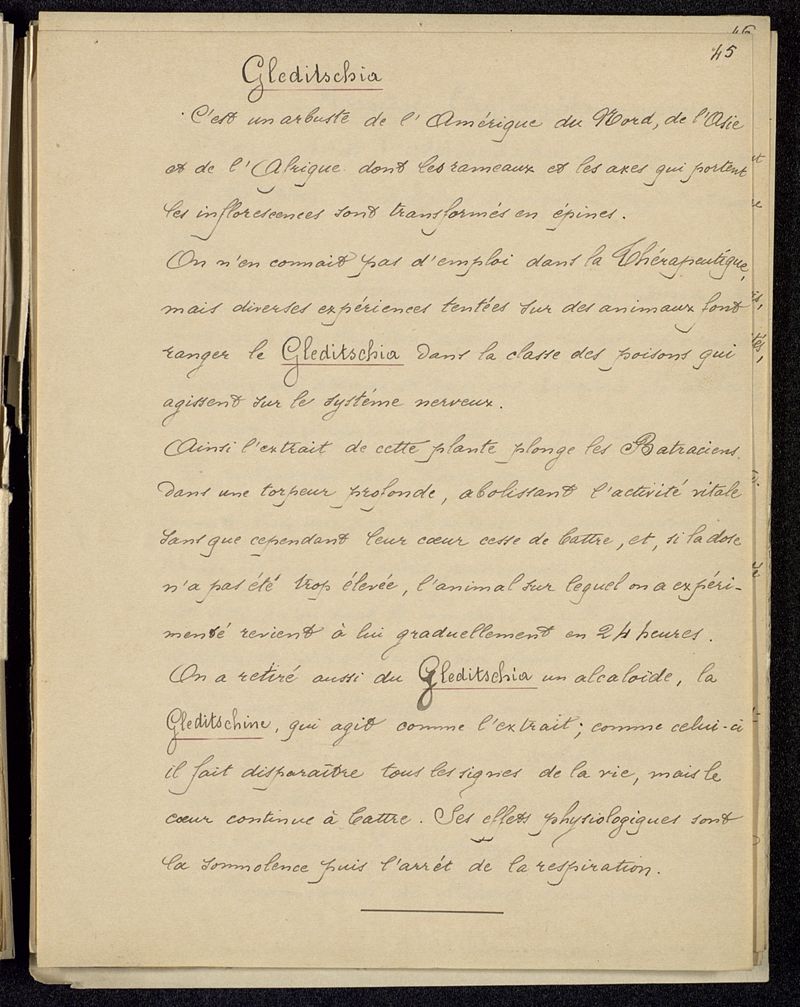 46
45
Gleditschia
C'est un arbuste de l'Amérique du Nord, de l'Asie
et de l'Afrique dont les rameaux et les axes qui portent
les inflorescences sont transformés en épines.
On n'en connait pas d'emploi dans la Thérapeutique,
mais diverses expériences tentées sur des animaux font
ranger le Gleditschia dans la classe des poisons qui
agissent sur le systéme nerveux.
Ainsi l'extrait de cette plante plonge les Batraciens
dans une torpeur profonde, abolissant l'activité vitale
sans que cependant leur cœur cesse de battre, et, si la dose
n'a pas été trop élevée, l'animal sur lequel on a expéri-
menté revient à lui graduellement en 24 heures.
On a retiré aussi du Gleditschia un alcaloïde, la
Gleditschine, qui agit comme l'extrait; comme celui-ci
il fait disparaître tous les signes de la vie, mais le
cœur continue à battre. Ses effets physiologiques sont
la somnolence puis l'arrêt de la respiration.